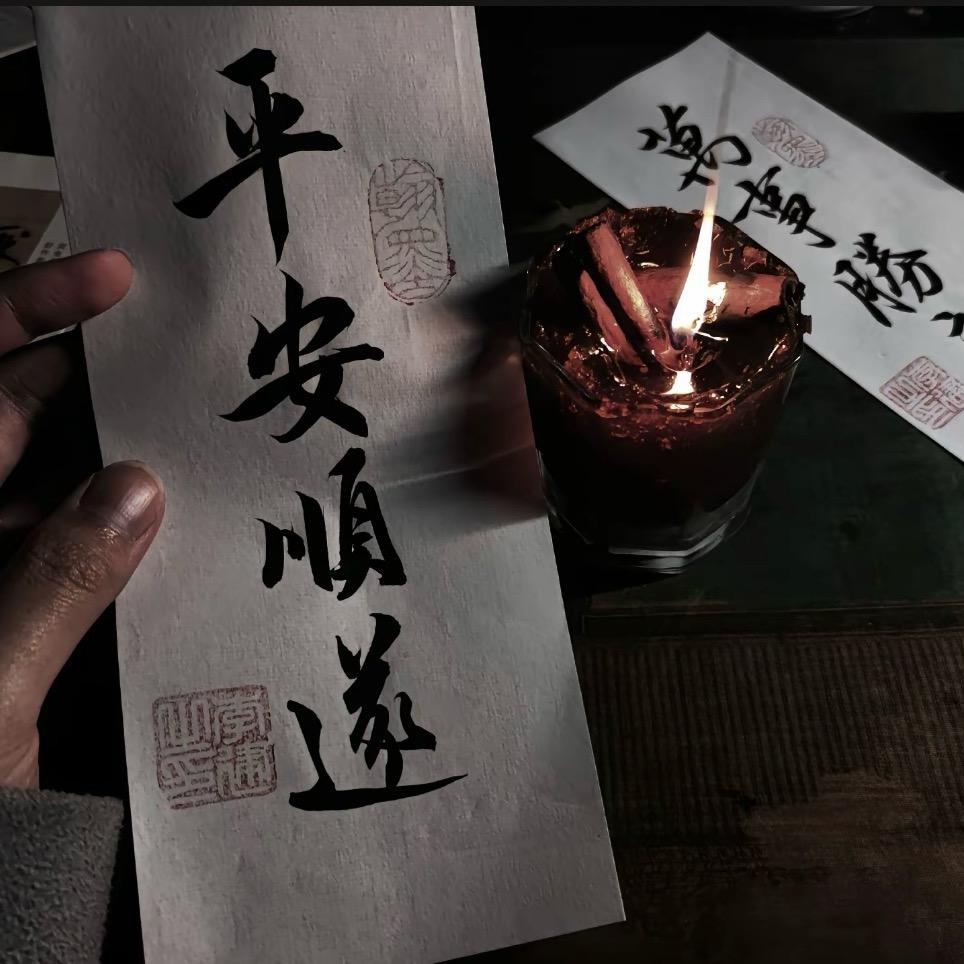 平安順遂
萬事勝